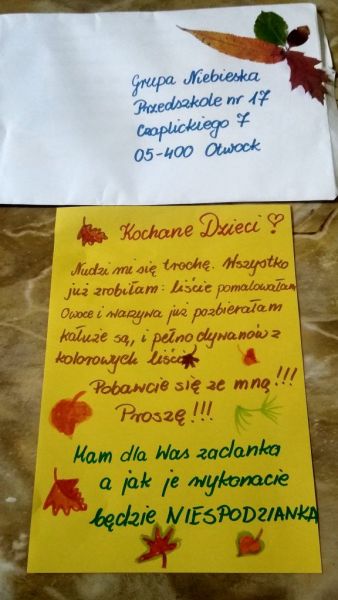 Grupa Niebieska
Przedszkole nr 17
Czaplickiego 7
05-400 Otwock
Kochane Dzieci!
Nudzi mi się trochę. Wszystko
już zrobiłam: liście pomalowałam
Owoce i warzywa już pozbierałam
kałuże są, i pełno dywanów z
kolorowych liści
Pobawcie się ze mną!!!
Proszę!!!
Mam dla Was zadanka
a jak je wykonacie
będzie NIESPODZIANKA